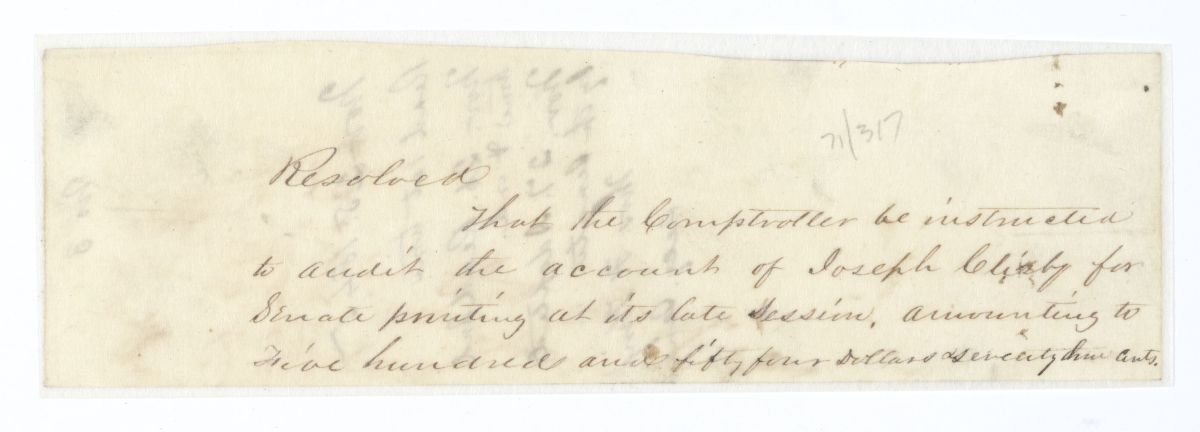 71/317
Resolved
That the Comptroller be instructed
to audit the account of Joseph Clisby for
Senate printing at its late Session, amounting to
Five hundred and fifty four Dollars & seventy cents.